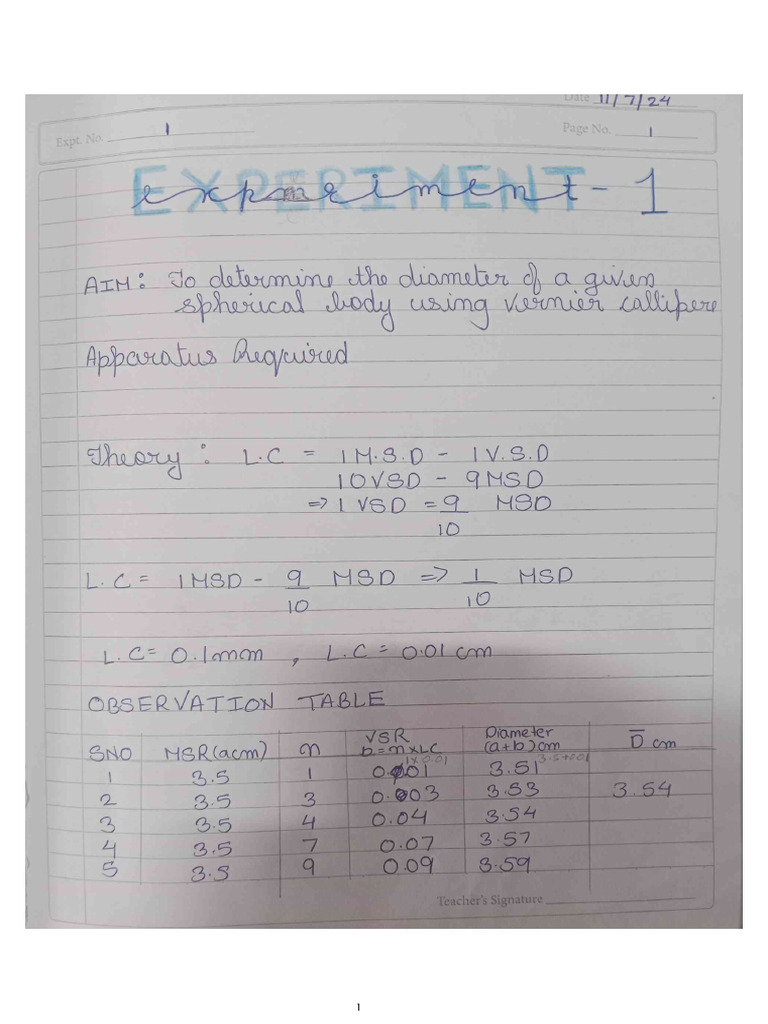 Date 11/7/24
Expt. No. 1 Page No. 1
EXPERIMENT
experiment - 1
AIM: To determine the diameter of a given
spherical body using vernier callipere
Apparatus Required
Theory : L.C = 1 M.S.D - 1 V.S.D
10VSD - 9MSD
=> 1 VSD = 9/10 MSD
L.C = 1MSD - 9/10 MSD => 1/10 MSD
L.C = 0.1mm , L.C = 0.01 cm
OBSERVATION TABLE
SNO MSR(acm) n VSR b=n×LC Diameter (a+b)cm D̅ cm
1×0.01 3.5+0.01
1 3.5 1 0.01 3.51
2 3.5 3 0.03 3.53 3.54
3 3.5 4 0.04 3.54
4 3.5 7 0.07 3.57
5 3.5 9 0.09 3.59
Teacher's Signature
1